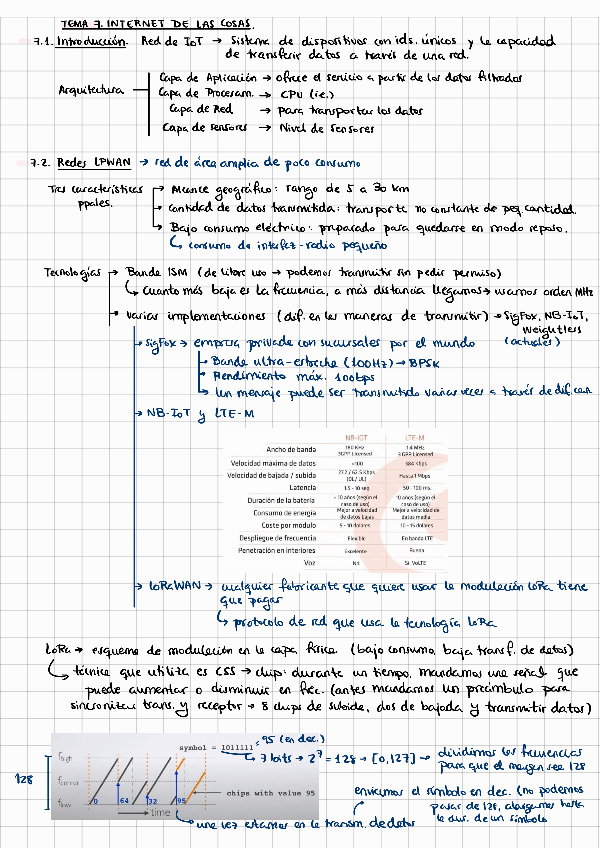 TEMA 7. INTERNET DE LAS COSAS.
7.1. Introducción. Red de IoT → Sistema de dispositivos con ids. únicos y la capacidad
de transferir datos a través de una red.
Arquitectura
Capa de Aplicación → ofrece el servicio a partir de los datos filtrados
Capa de Procesam. → CPU (i.e.)
Capa de Red → para transportar los datos
Capa de sensores → Nivel de sensores
7.2. Redes LPWAN → red de área amplia de poco consumo
Tres características
ppales.
→ Alcance geográfico: rango de 5 a 30 km
→ Cantidad de datos transmitida: transporte no constante de peq. cantidad.
→ Bajo consumo eléctrico: preparado para quedarse en modo reposo.
↳ consumo de interfaz-radio pequeño
Tecnologías → Banda ISM (de libre uso → podemos transmitir sin pedir permiso)
↳ Cuanto más baja es la frecuencia, a más distancia llegamos → usamos orden MHz
→ Varias implementaciones (dif. en las maneras de transmitir) → SigFox, NB-IoT,
Weightless
(actuales)
→ SigFox → empresa privada con sucursales por el mundo
→ Banda ultra-estrecha (100Hz) → BPSK
→ Rendimiento máx. 100bps
→ Un mensaje puede ser transmitido varias veces a través de dif. can
→ NB-IoT y LTE-M
NB-IOT LTE-M
Ancho de banda 180 KHz 3GPP Licensed 1.4 MHz 3GPP Licensed
Velocidad máxima de datos <100 384 Kbps
Velocidad de bajada / subida 27.2 / 62.5 Kbps (DL/ UL) Hasta 1 Mbps
Latencia 1.5 - 10 seg 50 - 100 ms.
Duración de la batería + 10 años (según el caso de uso) 10 años (según el caso de uso)
Consumo de energía Mejor a velocidad de datos bajas Mejor a velocidad de datos media
Coste por módulo 5 - 10 dolares 10 - 15 dolares
Despliegue de frecuencia Flexible En banda LTE
Penetración en interiores Excelente Buena
Voz No Si. VoLTE
→ LoRaWAN → cualquier fabricante que quiera usar la modulación LoRa tiene
que pagar
↳ protocolo de red que usa la tecnología LoRa
LoRa → esquema de modulación en la capa física (bajo consumo, baja transf. de datos)
↳ técnica que utiliza es CSS → chip: durante un tiempo, mandamos una señal que
puede aumentar o disminuir en frec. (antes mandamos un preámbulo para
sincronizar trans. y receptor → 8 chips de subida, dos de bajada y transmitir datos)
symbol = 1011111 = 95 (en dec.)
↳ 7 bits → 2^7 = 128 → [0,127] → dividimos las frecuencias
para que el margen sea 128
128
fhigh
fcenter
flow
0 64 32 95
chips with value 95
time
enviamos el símbolo en dec. (no podemos
pasar de 128, alargamos hasta
la dur. de un símbolo
↳ una vez estamos en la transm. de datos